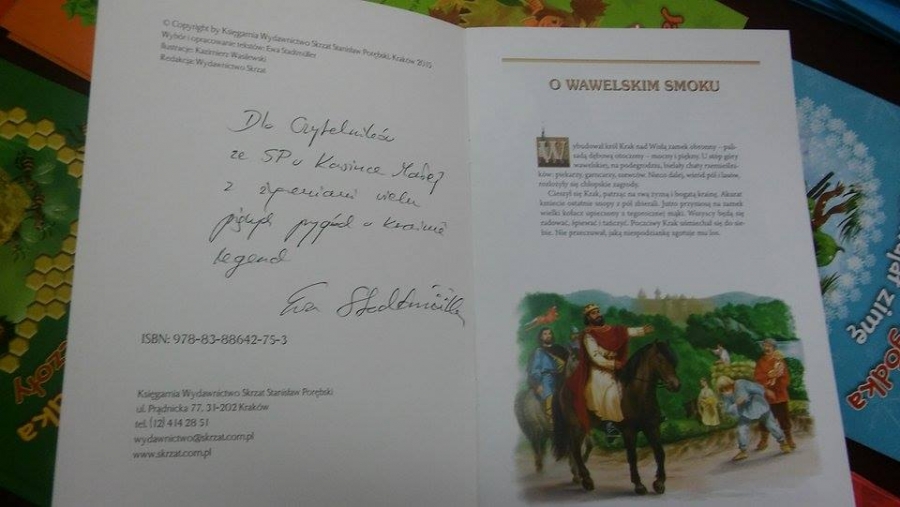 © Copyright by Księgarnia Wydawnictwo Skrzat Stanisław Porębski, Kraków 2015
Wybór i opracowanie tekstów: Ewa Stadtmüller
Ilustracje: Kazimierz Wasilewski
Redakcja: Wydawnictwo Skrzat
Dla Czytelników
ze SP w Kasince Małej
z życzeniami wielu
pięknych przygód w krainie
legend
Ewa Stadtmüller
ISBN: 978-83-88642-75-3
Księgarnia Wydawnictwo Skrzat Stanisław Porębski
ul. Prądnicka 77, 31-202 Kraków
tel. (12) 414 28 51
wydawnictwo@skrzat.com.pl
www.skrzat.com.pl
O WAWELSKIM SMOKU
Wybudował król Krak nad Wisłą zamek obronny – pali-
sadą dębową otoczony – mocny i piękny. U stóp góry
wawelskiej, na podegrodziu, osiedlały chaty rzemieślni-
ków: piekarzy, garncarzy, szewców. Nieco dalej, wśród pól i lasów,
rozłożyły się chłopskie zagrody.
Cieszył się Krak, patrząc na swą żyzną i bogatą krainę. Akurat
kmiecie ostatnie snopy z pól zbierali. Jutro przyniosą na zamek
wielki kołacz upieczony z tegorocznej mąki. Wszyscy będą się
radować, śpiewać i tańczyć. Poczciwy Krak uśmiechał się do sie-
bie. Nie przeczuwał, jaką niespodziankę zgotuje mu los.
zimę